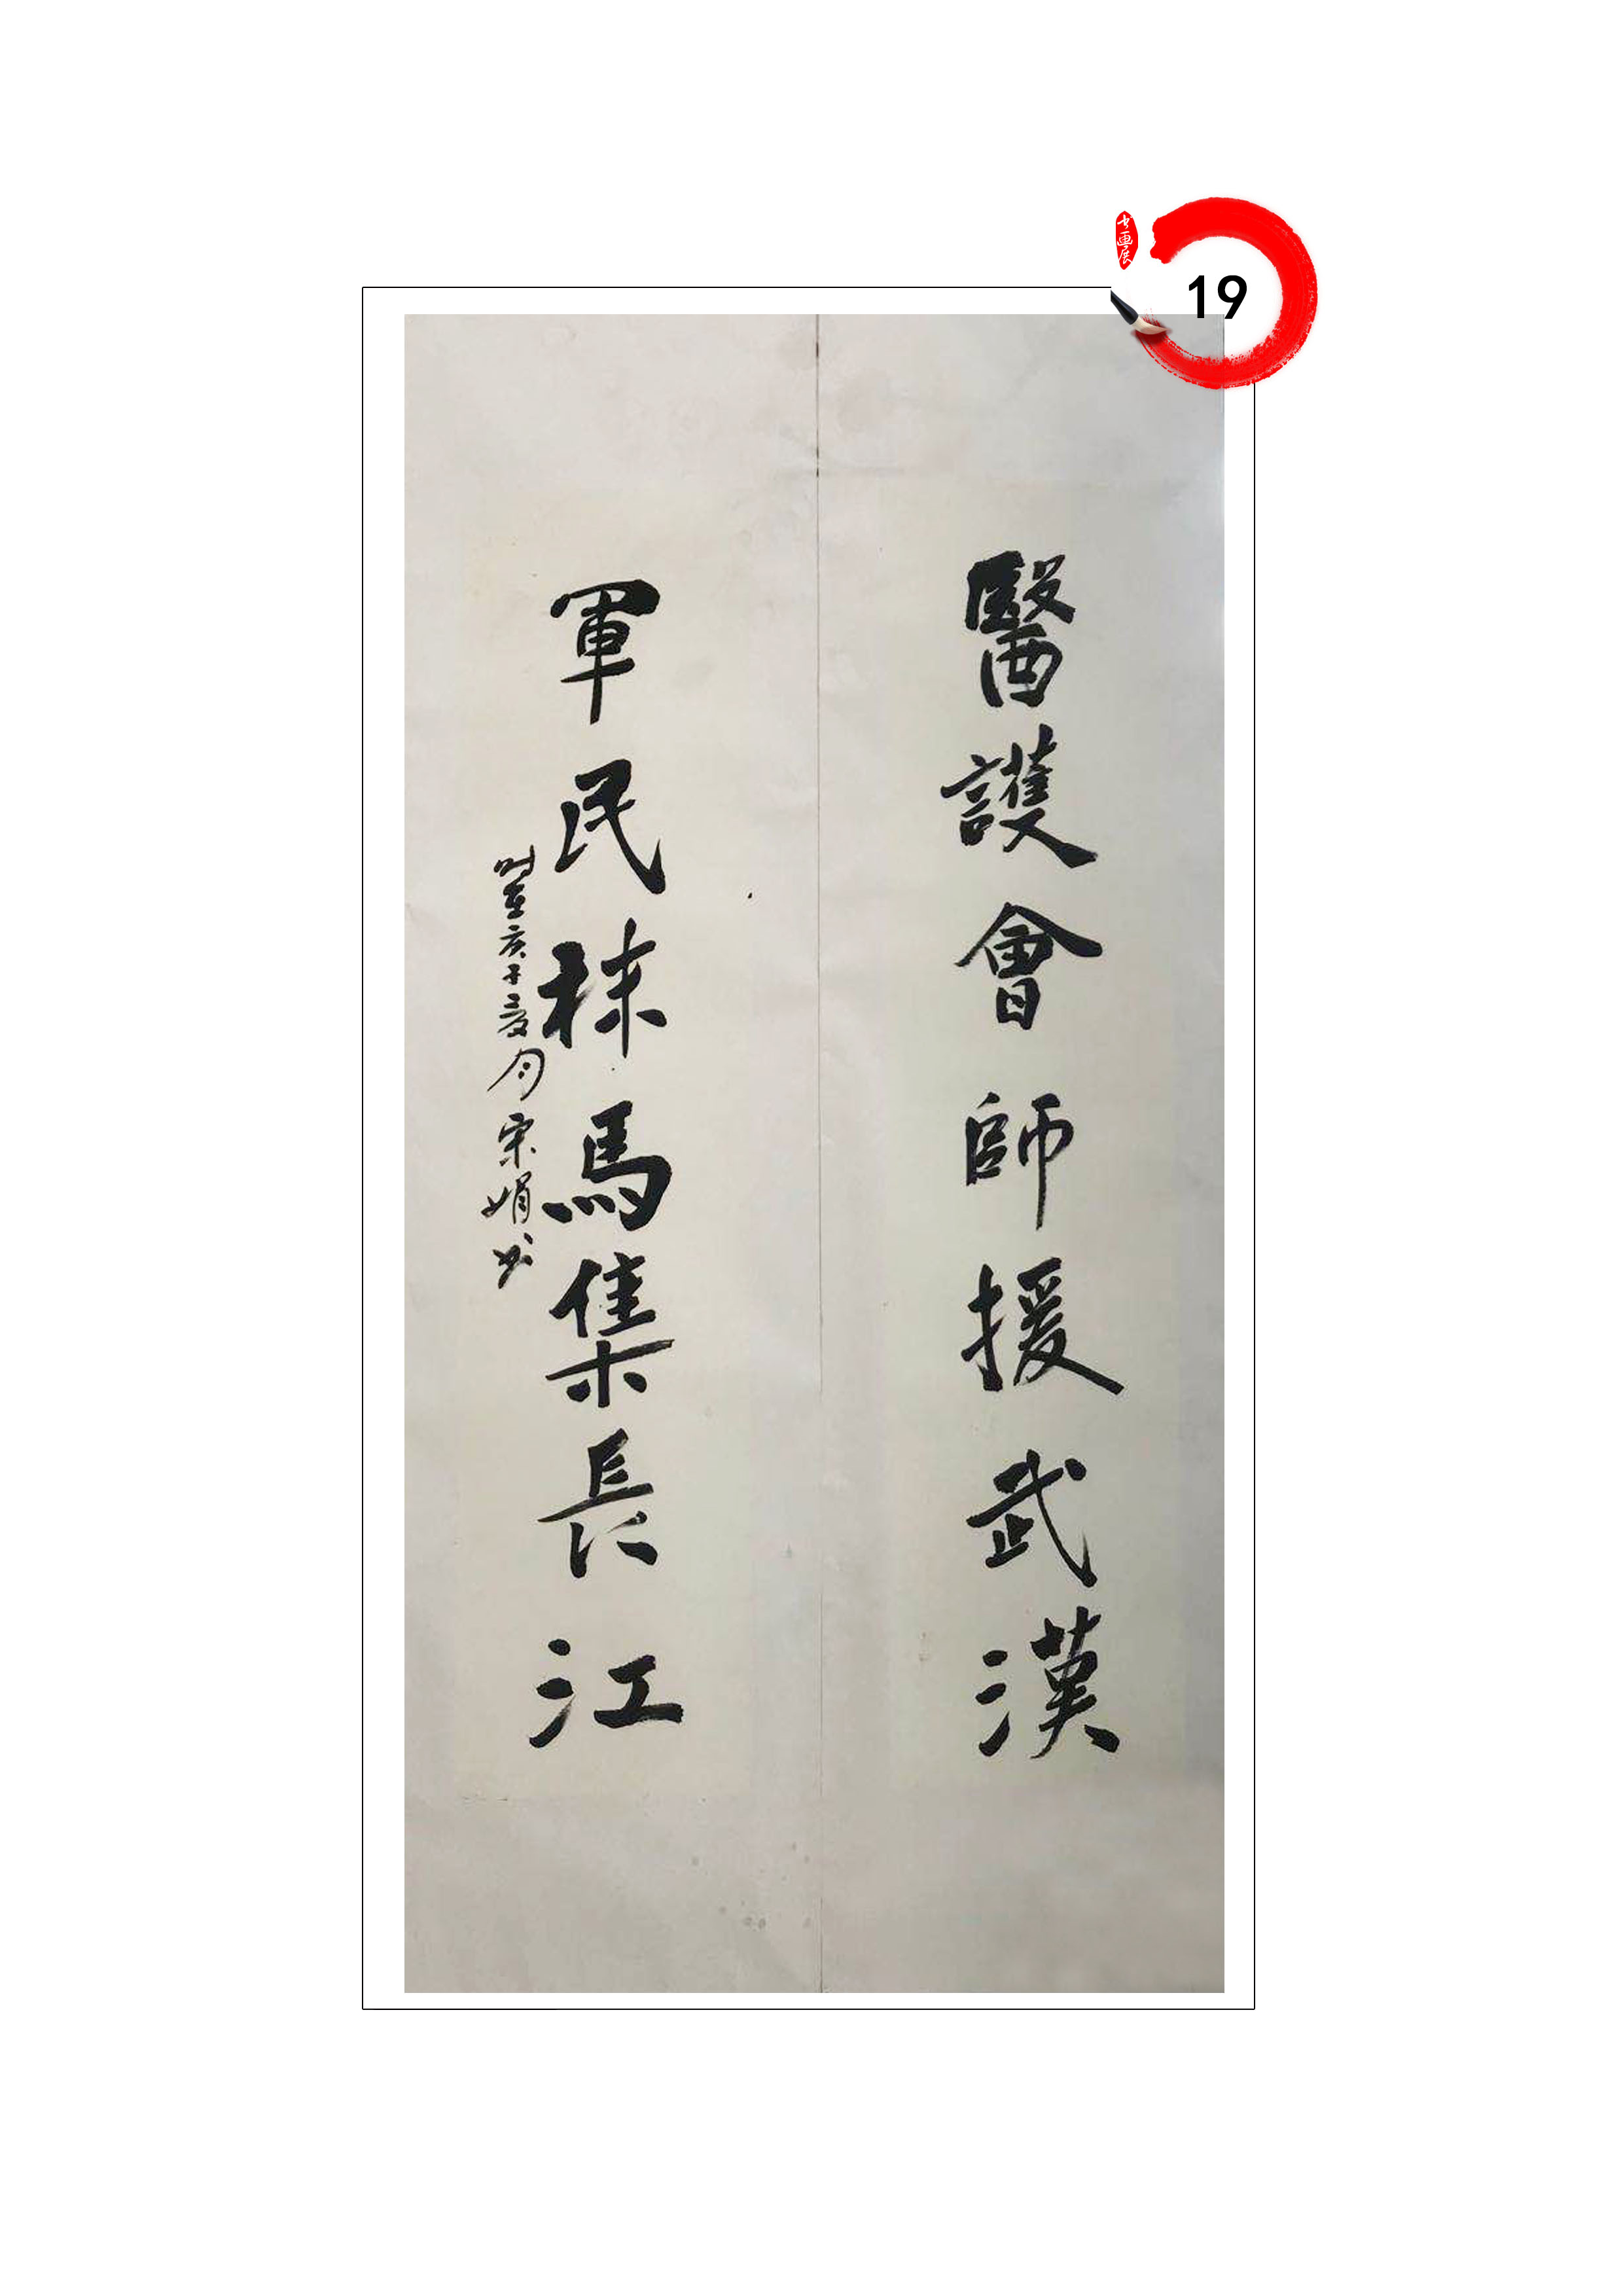 書画展
19
醫護會師援武漢
軍民秣馬集長江
時在亥子交月宋娟书